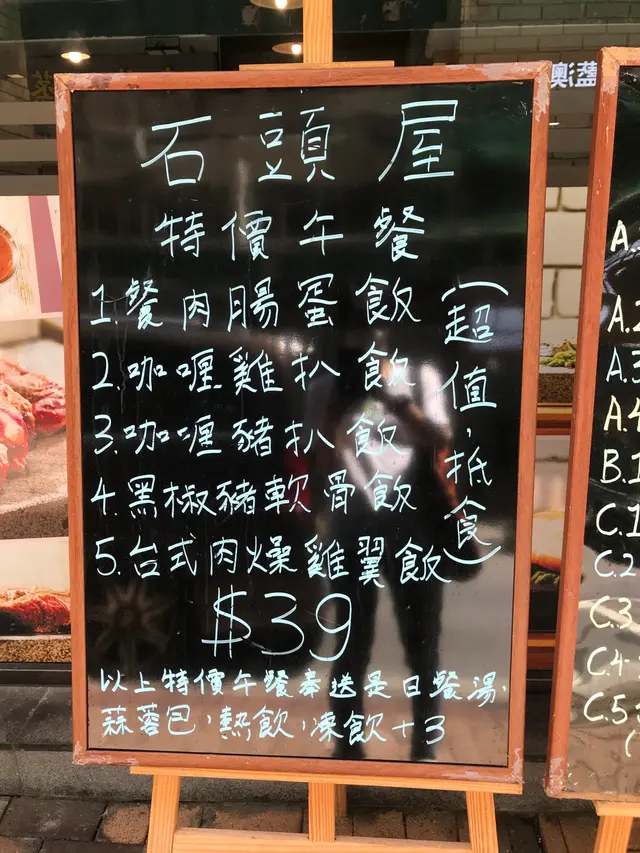 石頭屋
特價午餐
1.餐肉腸蛋飯
2.咖喱雞扒飯
3.咖喱豬扒飯
4.黑椒豬軟骨飯
5.台式肉燥雞翼飯
(超值,抵食)
$39
以上特價午餐奉送是日餐湯,
蒜蓉包,熱飲,凍飲+3
藍澳
A.
A.2
A.3
A.4
B.1
C.1
C.2
C.3
C.4
C.5
(